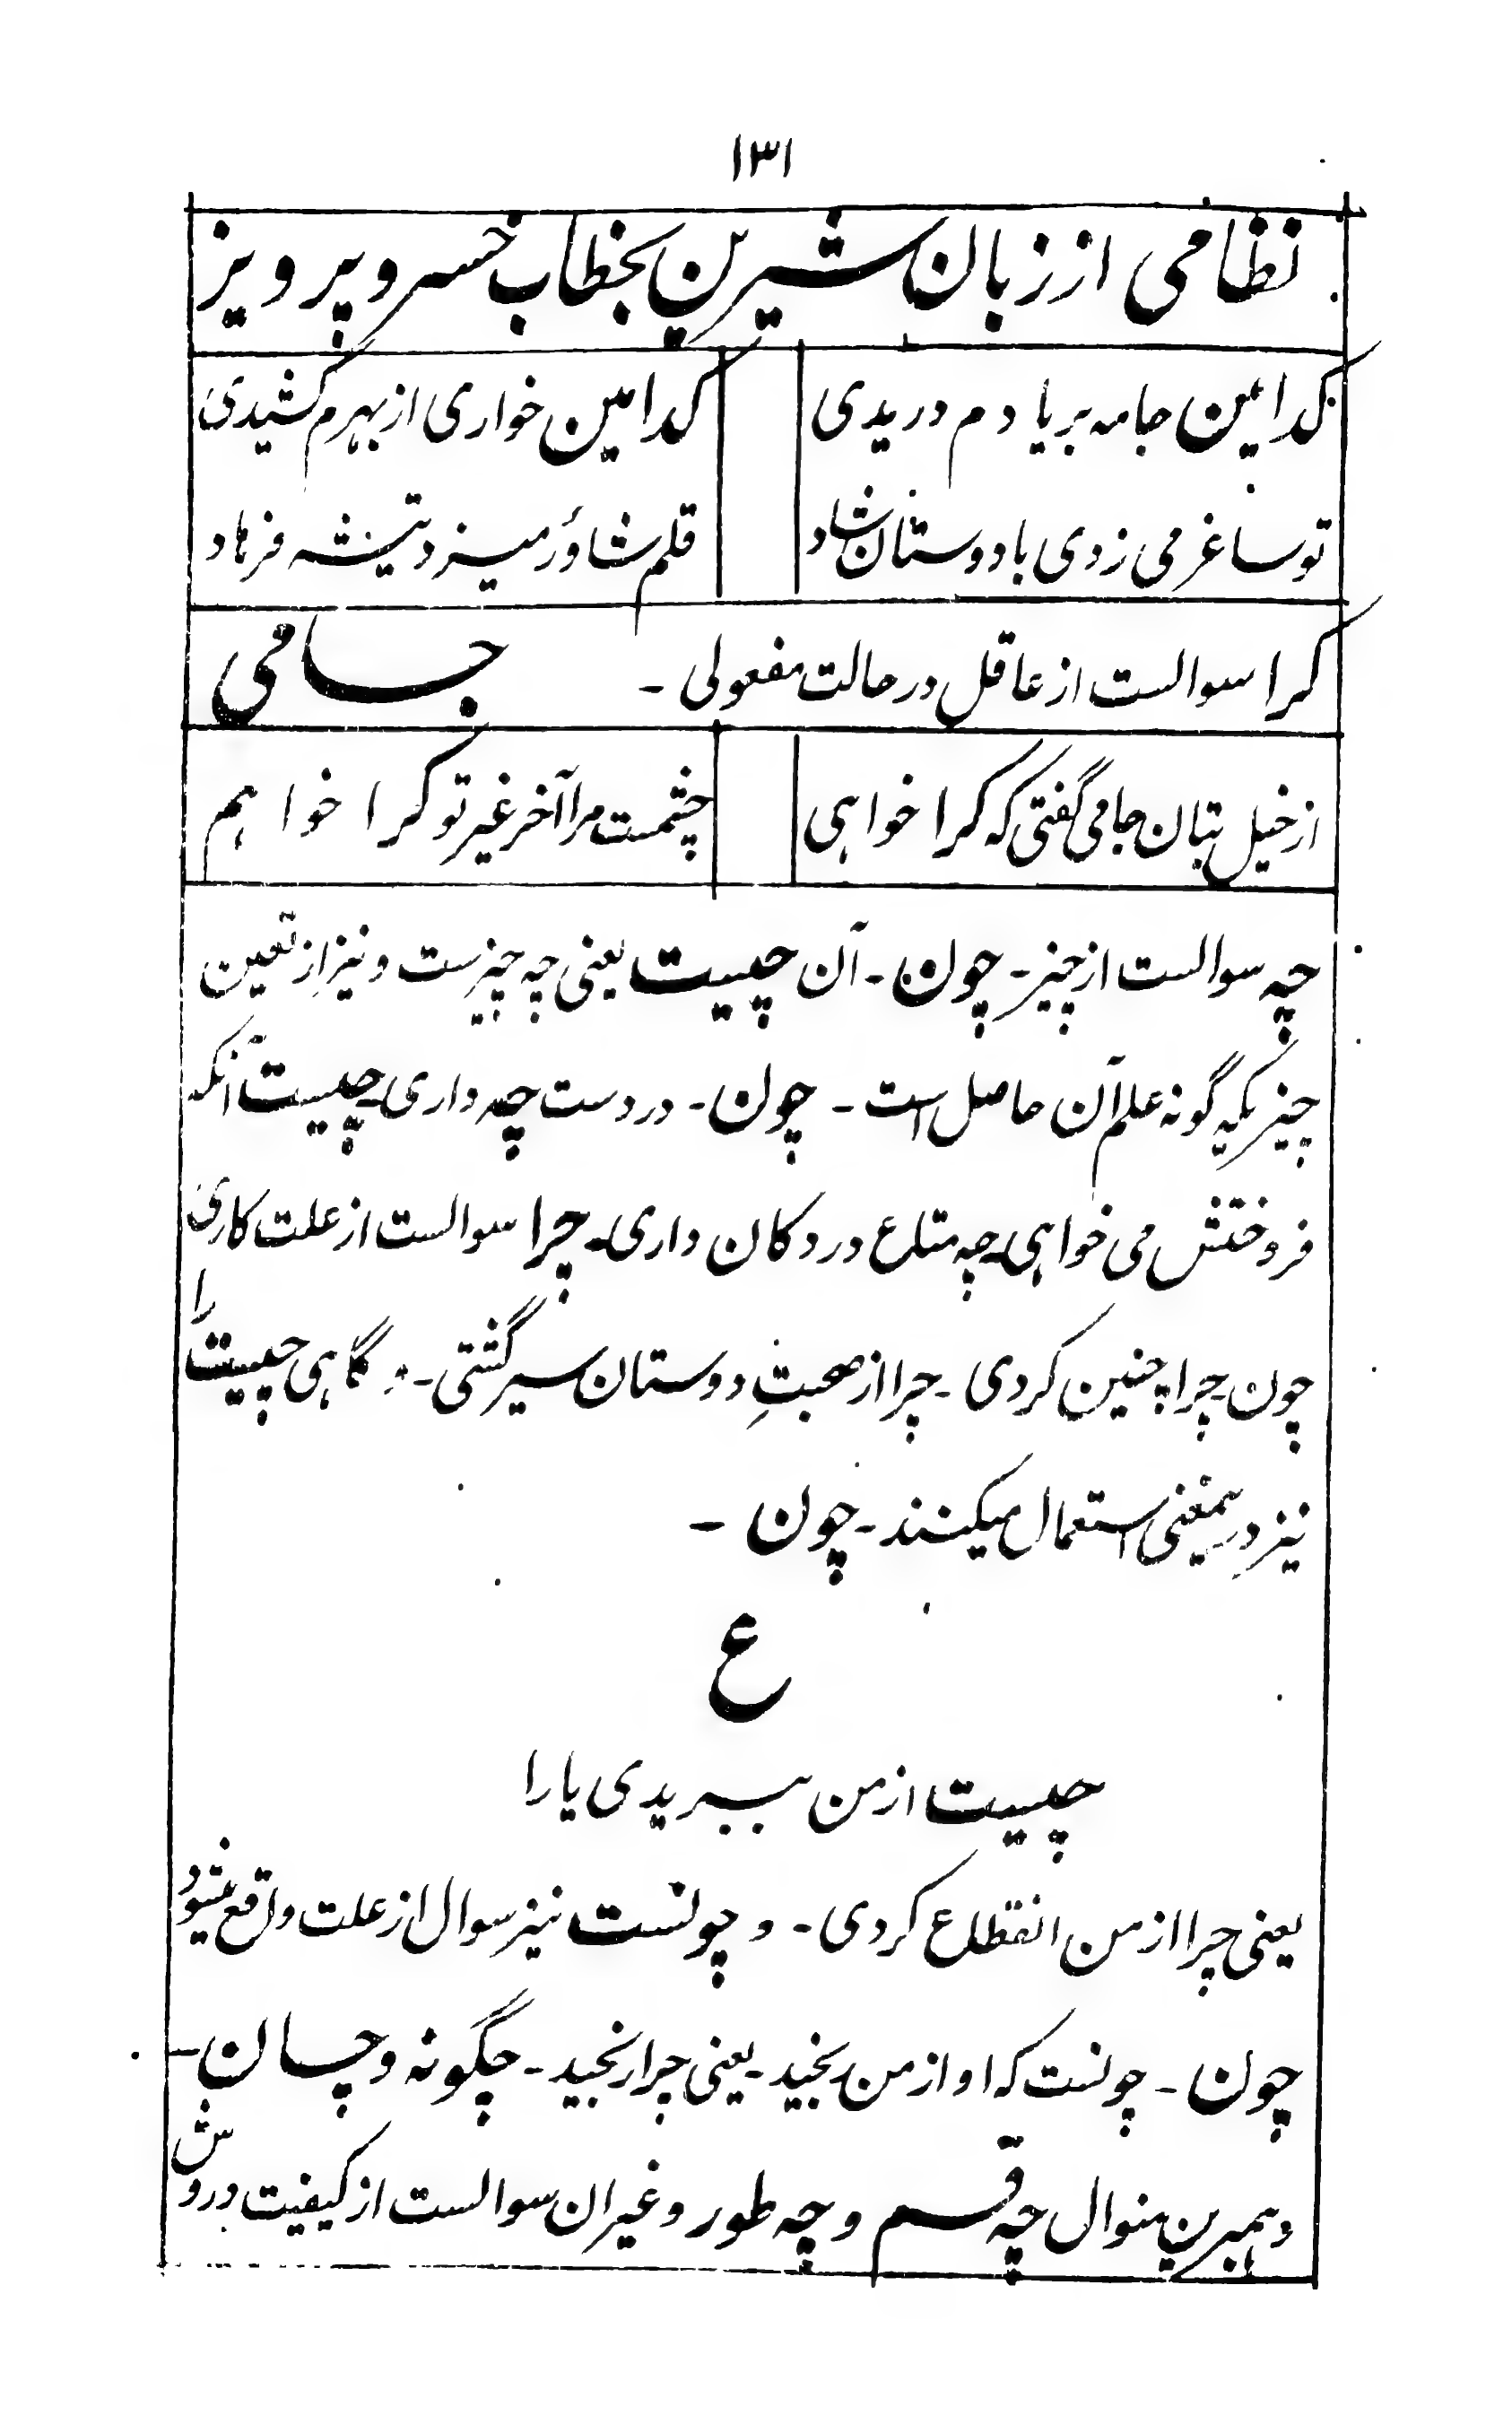 ۱۳۱
نظامی از زبان شیرین بخطاب خسرو پرویز
کدامین جامه بر یادم دریدی کدامین خواری از بهرم کشیدی
تو ساغر می زدی با دوستان شاد قلم شاور میزد تیشه فرهاد
کرا سوالست از عاقل در حالت مفعولی - جامی
از خیل بتان جامی گفتی که کرا خواهی چشمست مرا آخر غیر تو کرا خواهم
چه سوالست از چیز - چون - آن چیست یعنی چه چیزست و نیز از تعین
چیزیکه گونه علم آن حاصل است - چون - در دست چه داری - چیست آنکه
فروختنش می خواهی - چه متاع در دکان داری - چرا سوالست از علت کاری
چون - چرا چنین کردی - چرا از صحبتِ دوستان سیر گشتی - و گاهی چیست را
نیز درینمعنی استعمال میکنند - چون -
ع
چیست از من ببریدی یارا
یعنی چرا از من انقطاع کردی - و چونست نیز سوال از علت واقع میشود
چون - چونست که او از من رنجید - یعنی چرا رنجید - چگونه و چسان -
و همبرین منوال چه قسم و چه طور و غیر ان سوالست از کیفیت و روش